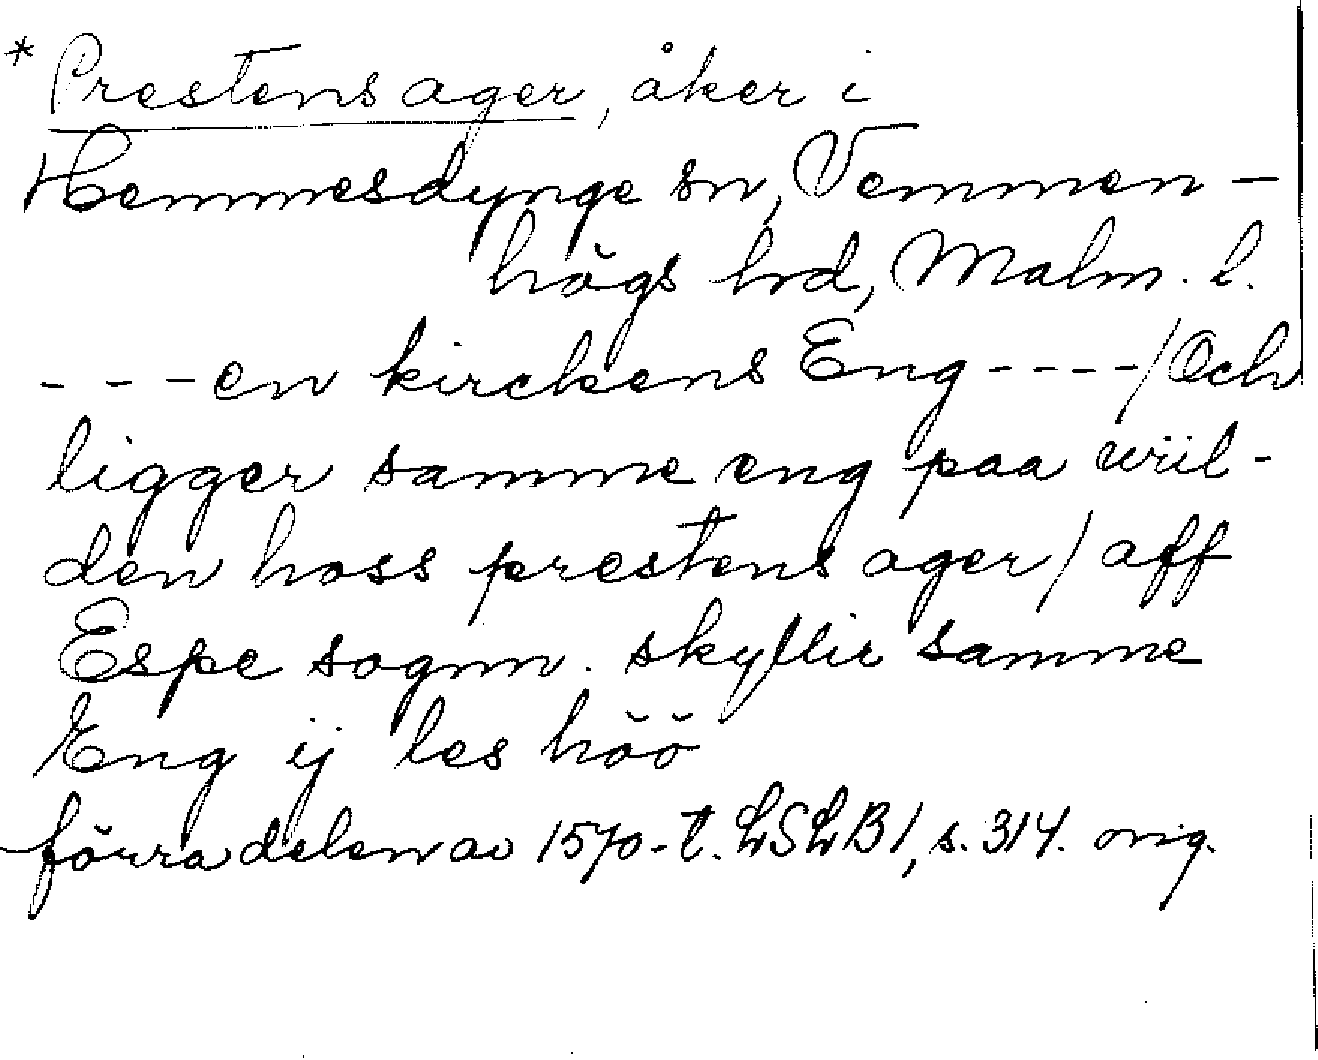 * Prestens ager, åker i
Hemmesdynge sn, Vemmen-
högs hrd, Malm. l.
- - - en kirckens Eng - - - - / Och
ligger samme eng paa wiil-
den hoss prestens ager / aff
Espe sognn. skyllir samme
Eng ij les höö
förra delen av 1570-t. LSLB 1, s. 314. orig.